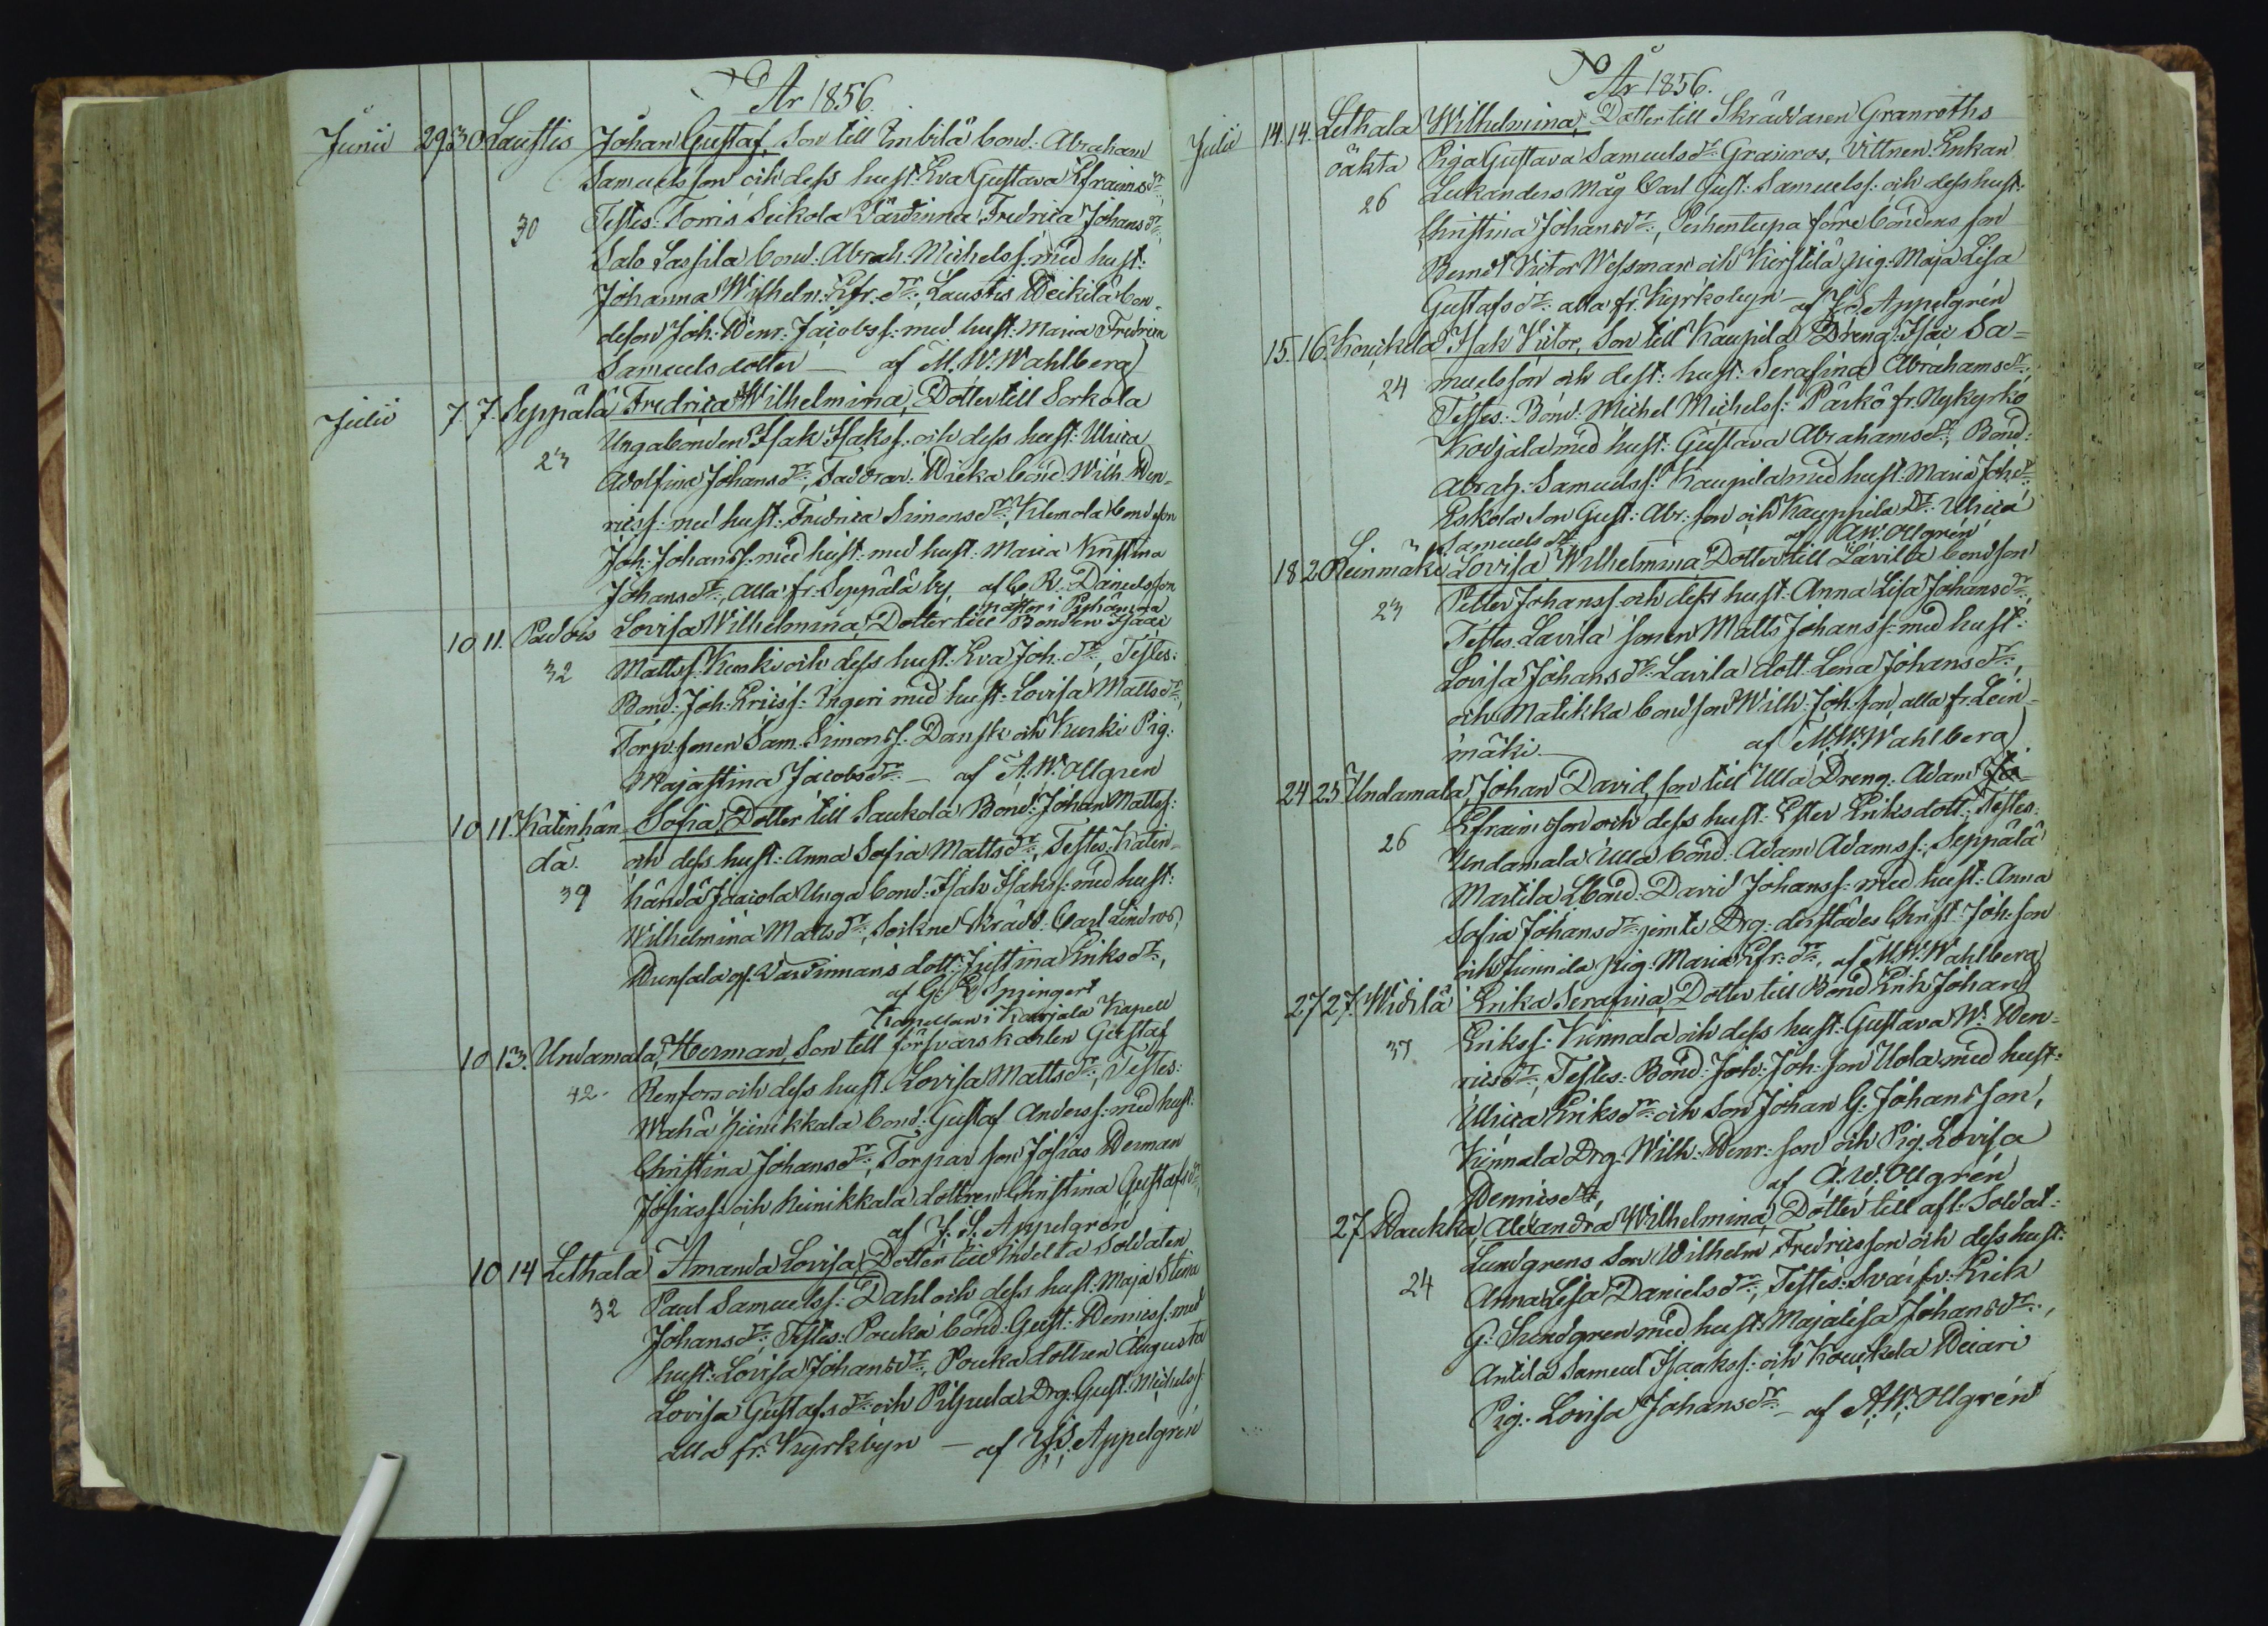 År 1856.
Junii 29 30 Laustis Johan Gustaf, Son till Imbilä bond: Abraham
Samuelsson och dess hust: Eva Gustava Efraimsdr:
30 Testes: Torris Seikola Värdinna Fredrica Johansdr:,
Salo Lassila bond: Abrah: Michelss: med hust:
Johanna Wilhelm: Efr: dr:, Laustis Heikilä bon-
deson Joh: Henr: Jacobss: med hust: Maria Fredrica
Samuelsdotter — af M. W. Wahlberg
Julii 7. 7. Seppälä Fredrica Wilhelmina, Dotter till Sorkola
23 Ungabonden Isak Isakss: och dess hust: Ulrica
Adolfina Johansdr:, Faddrar: Wieka bond: Wilh: Hen-
ricss: med hust: Fredrica Simonsdr:, Klemola bondeson
Joh: Johanss: med hust: med hust: Maria Kristina
Johansdr:, alla fr: Seppälä by, af C. R. Danielsson
10 11. Padois Lovisa Wilhelmina, Dotter till Bonden Isaac
32 Mattss: Kurki och dess hust: Eva Joh: dr:, Testes:
Bond: Joh: Ericss: Ingeri med hust: Lovisa Mattsdr:,
Torp: sonen Sam: Simonss: Dansk och Kurki Pig:
Majastina Jacobsdr: — af A. W. Ollgren
10 11. Katinhän- Sofia, Dotter till Saukola Bond: Johan Mattss:
dä. och dess hust: Anna Sofia Mattsdr:, Testes: Katin-
39 händä Jaacola Unga bond: Isak Isakss: med hust:
Wilhelmina Mattsdr:, Sockne Skrädd: Carl Lindros,
Hunsala gl: Värdinnans dott: Justina Eriksdr:,
af G. E. Spjengert
Kapellan i Karjala Kapell
10 13. Undamala, Herman, Son till försvarskarlen Gustaf
42. Renfors och dess hust: Lovisa Mattsdr:, Testes:
Wähä Heinikkala bond: Gustaf Anderss: med hust:
Christina Johansdr:, Torpar son Josias Herman
Josiass: och Heinikkala dottren Christina Gustafsdr:,
af J. S. Appelgren
10 14 Lethala Amanda Lovisa, Dotter till Indelta Soldaten
32 Paul Samuelss: Dahl och dess hust: Maja Stina
Johansdr:, Testes: Pouka bond: Gust: Henricss: med
hust: Lovisa Johansdr:, Pouka dottren Augusta
Lovisa Gustafsdr: och Piljula Drg: Gust: Michelss:
alla fr: Kyrkbyn — af J. S. Appelgren
År 1856.
Julii 14. 14. Lethala Wilhelmina, Dotter till Skräddaren Granroths
oäkta Piga Gustava Samuelsdr: Granros, vittnen: Enkan
26 Leukanders Måg Carl Gust: Samuelss: och dess hust:
Christina Johansdr:, Perhentupa förre bondens son
Bernd: Victor Wessman och Kierstilä pig: Maja Lisa
Gustafsdr: alla fr: Kyrkobyn — af J. S. Appelgrén
15. 16. Koukela Isak Victor, Son till Kaupila Dreng: Isac Sa-
24 muelsson och dest: hust: Serafina Abrahamsdr:
Testes: Bond: Michel Michelss: Pärkö fr: Nykyrko
Korjala med hust: Gustava Abrahamsdr:, Bond:
Abrah: Samuelss: Kaupila med hust: Maria Joh: dr:
Eskola Son Gust: Abr: son och Kauppila dr: Ulrica
Samuelsdr: af A. W. Ollgrén
18 20 Leinmäki Lovisa Wilhelmina, Dotter till Lavilla bondson
23 Petter Johanss: och dess hust: Anna Lisa Johansdr:,
Testes: Lavila sonen Matts Johanss: med hust:
Lovisa Johansdr: Lavila dott: Lena Johansdr:,
och Matikka bondson Wilh: Joh: son, alla fr: Lein-
mäki — af M. W. Wahlberg
24 25 Undamala, Johan David, son till Ulla Dreng: Adam
26 Efraimsson och dess hust: Ester Eriksdott: Testes:
Undamala Ulla bond: Adam Adamss:, Seppälä
Martila Lbond: David Johanss: med hust: Anna
Sofia Johansdr: jemte Drg: derstädes Christ: Joh: son
och Junnila pig: Maria Efr: dr:, af M. W. Wahlberg
27 27. Widilä Erika Serafina, Dotter till Bond: Erik Johan
37 Erikss: Kinnala och dess hust: Gustava W: Hen-
ricsdr:, Testes: Bond: Joh: Joh: son Uola med hust:
Ulrica Eriksdr: och Son Johan G: Johansson,
Kinnala Drg: Wilh: Henr: son och Pig: Lovisa
Henricsdr:, af A. W. Ollgrén
27 Haukka, Alexandra Wilhelmina, Dotter till afl: Soldat:
Lundgrens Son Wilhelm Fredricsson och dess hust:
24 Anna Lisa Danielsdr:, Testes: Svarfv: Erik
G: Sundgren med hust: Majalisa Johansdr:,
Antila Samuel Isaakss: och Koukela Heiari
Pig: Lovisa Johansdr: — af A. W. Ollgrén